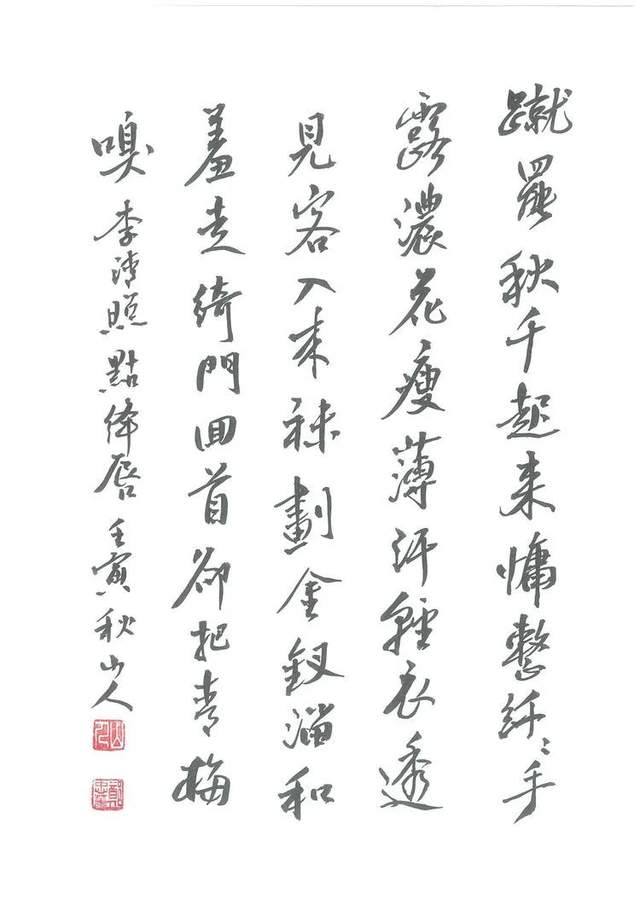 蹴羅秋千起来慵整纤〻手
露濃花瘦薄汗輕衣透
見客入来袜劃金釵溜和
羞走綺門回首卻把青梅
嗅 李清照 點绛唇 壬寅秋 山人